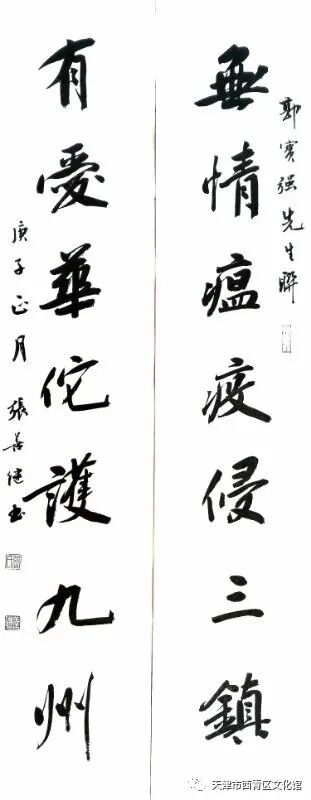 郭寶强先生聯
無情瘟疫侵三鎮
有愛華佗護九州
庚子正月 張善继书
天津市西青区文化馆